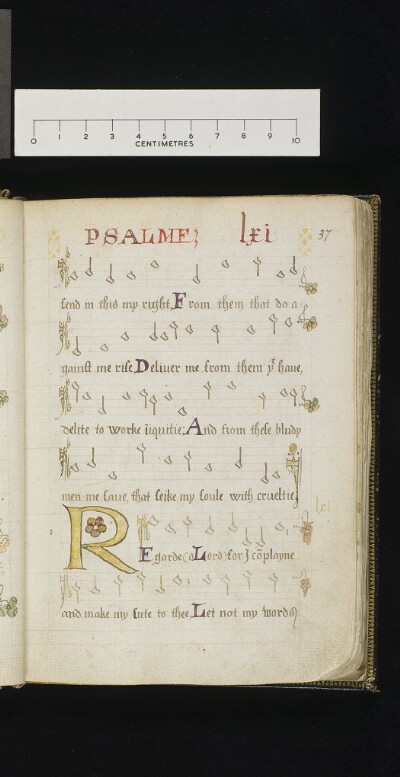 0 1 2 3 4 5 6 7 8 9 10
CENTIMETRES
PSALME; lxi 37
fend in this my right, From them that do a
gainst me rise, Deliuer me from them yt haue,
delite to worke iniquitie; And from these bludy
men me saue, that seike my soule with crueltie;
lxi
REgarde (o Lord) for I cōplayne
and make my sute to thee, Let not my words)